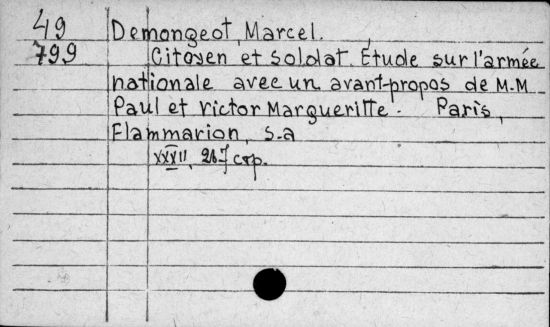 49 Demongeot, Marcel.
799 Citoyen et soldat. Etude sur l'armée
nationale avec un avant-propos de M.M.
Paul et Victor Margueritte. Paris,
Flammarion, s.a
XXXII, 287 стр.